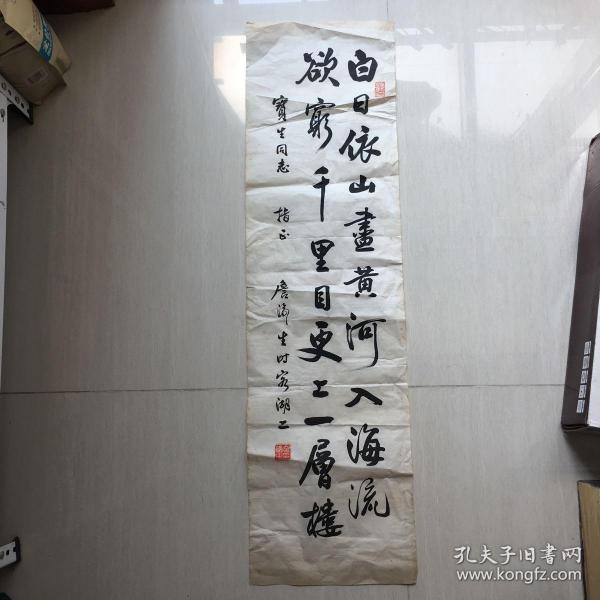 白日依山畫黄河入海流
欲窮千里目更上一層樓
寶生同志 指正
生时客湖上
孔夫子旧书网
www.kongfz.com